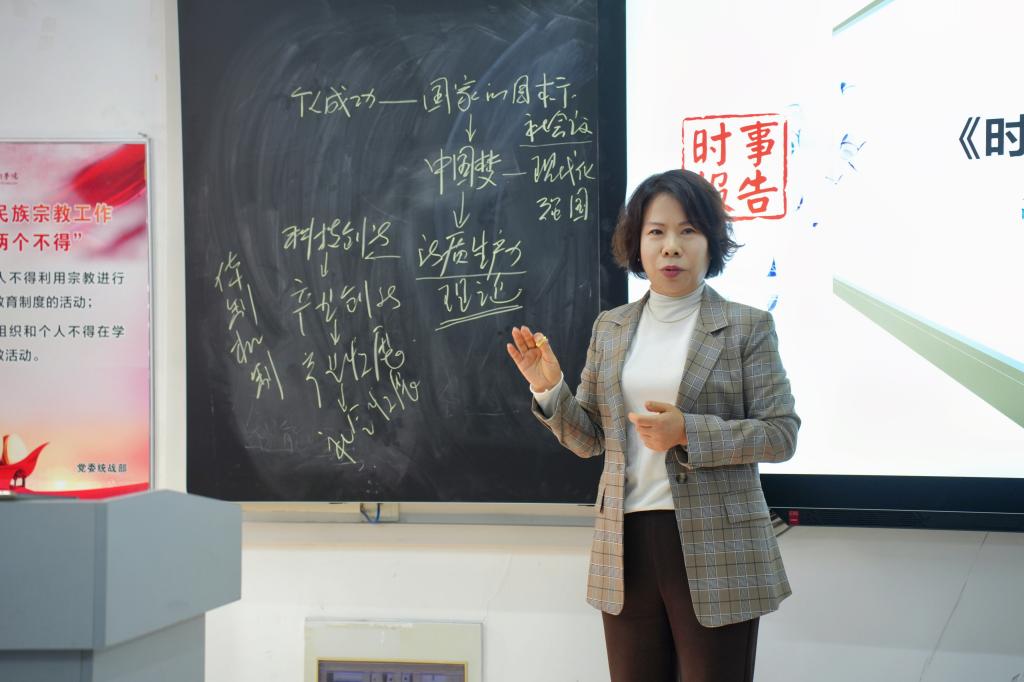 民族宗教工作
两个不得”
人不得利用宗教进行
教育制度的活动；
组织和个人不得在学
教活动。
党委统战部
个人成功——国家的目标
社会主义
中国梦—现代化
强国
生产力
理论
科技创新
产业创新
体制机制
时事
报告
《时